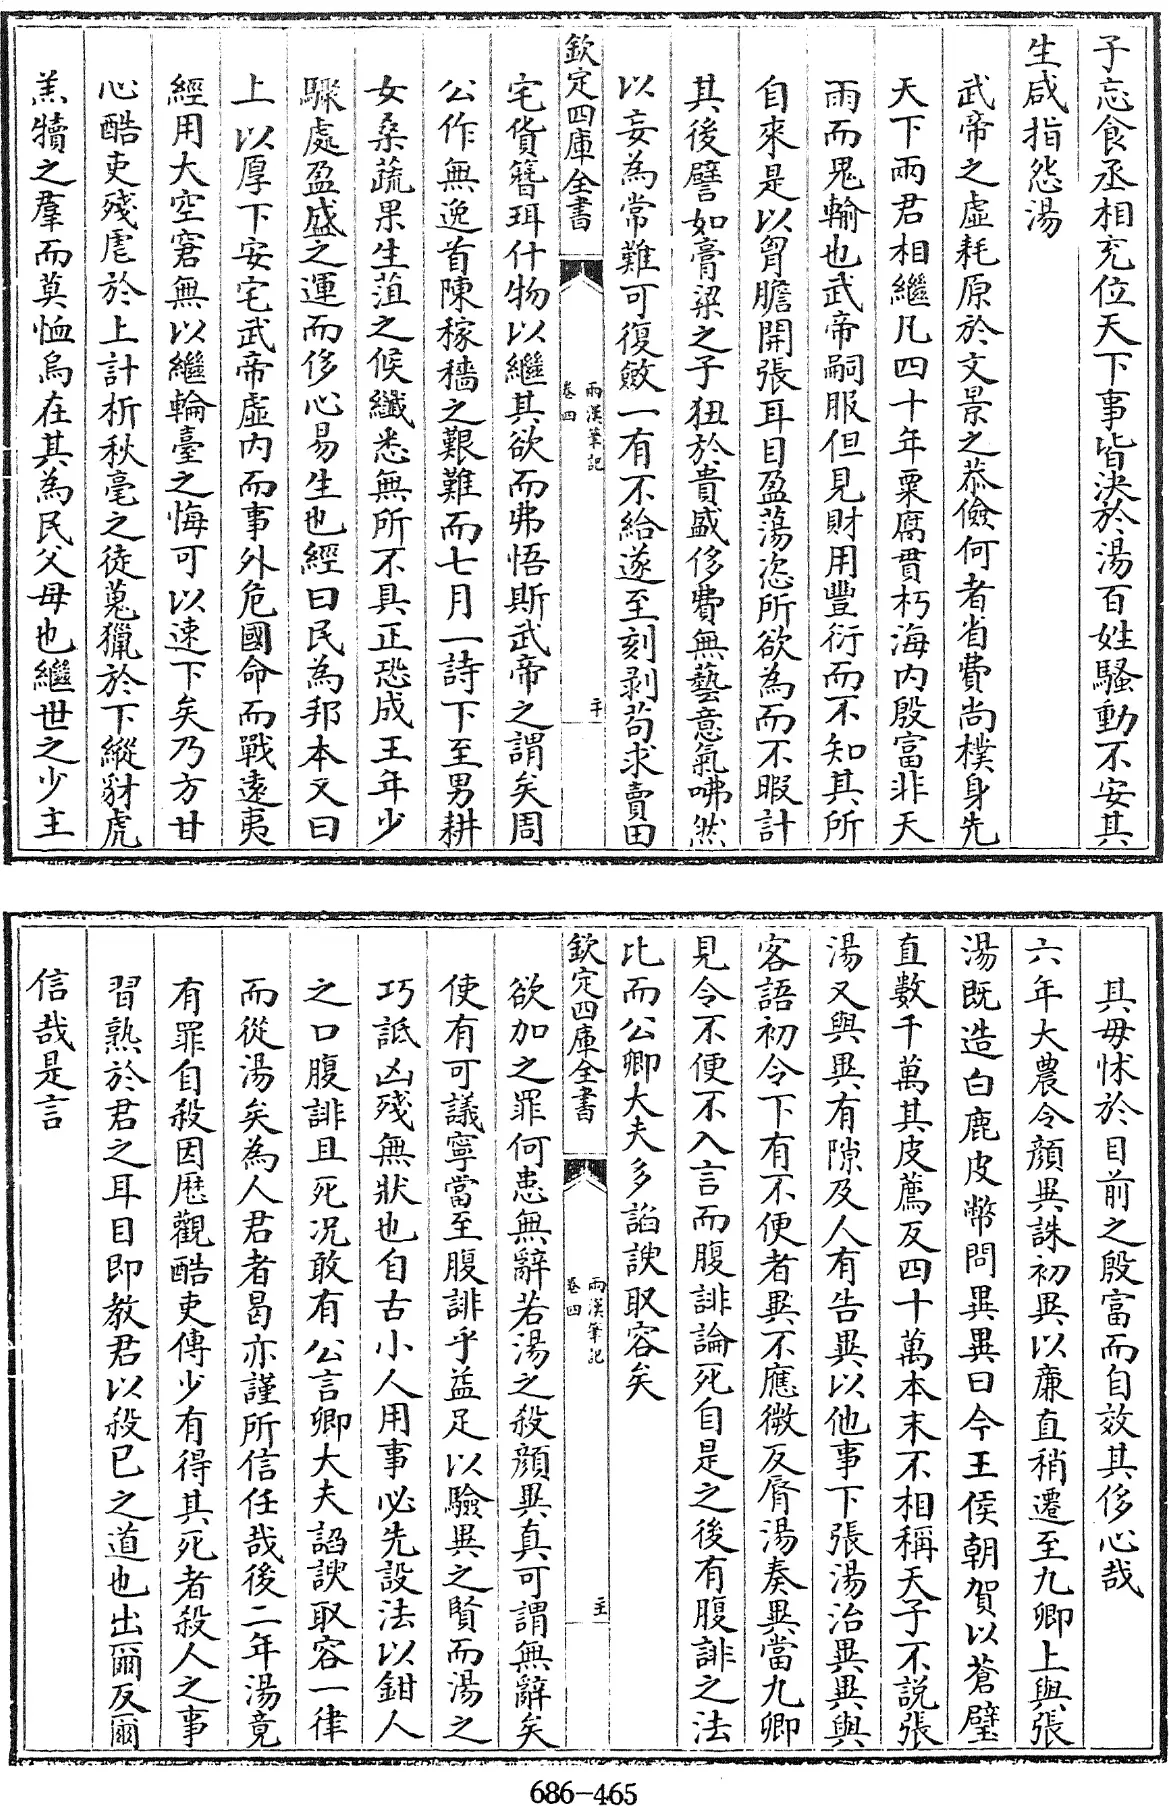 子忘食丞相充位天下事皆決於湯百姓騷動不安其
生咸指怨湯
武帝之虛耗原於文景之恭儉何者省費尚樸身先
天下兩君相繼凡四十年粟腐貫朽海内殷富非天
雨而鬼輸也武帝嗣服但見財用豐衍而不知其所
自來是以胷膽開張耳目盈蕩恣所欲為而不暇計
其後譬如膏粱之子狃於貴盛侈費無藝意氣咈然
以妄為常難可復斂一有不給遂至刻剥茍求賣田
欽定四庫全書
兩漢筆記
卷四
二十
宅貨簪珥什物以繼其欲而弗悟斯武帝之謂矣周
公作無逸首陳稼穡之艱難而七月一詩下至男耕
女桑蔬果生菹之候纖悉無所不具正恐成王年少
驟處盈盛之運而侈心易生也經曰民為邦本又曰
上以厚下安宅武帝虛内而事外危國命而戰遠夷
經用大空窘無以繼輪臺之悔可以速下矣乃方甘
心酷吏殘虐於上計析秋毫之徒蒐獵於下縱豺虎
羔犢之羣而莫恤烏在其為民父母也繼世之少主
其毋怵於目前之殷富而自效其侈心哉
六年大農令顔異誅初異以廉直稍遷至九卿上與張
湯既造白鹿皮幣問異異曰今王侯朝賀以蒼璧
直數千萬其皮薦反四十萬本末不相稱天子不説張
湯又與異有隙及人有告異以他事下張湯治異異與
客語初令下有不便者異不應微反脣湯奏異當九卿
見令不便不入言而腹誹論死自是之後有腹誹之法
比而公卿大夫多諂諛取容矣
欽定四庫全書
兩漢筆記
卷四
主
欲加之罪何患無辭若湯之殺顔異真可謂無辭矣
使有可議寧當至腹誹乎益足以驗異之賢而湯之
巧詆凶殘無狀也自古小人用事必先設法以鉗人
之口腹誹且死况敢有公言卿大夫諂諛取容一律
而從湯矣為人君者曷亦謹所信任哉後二年湯竟
有罪自殺因厯觀酷吏傳少有得其死者殺人之事
習熟於君之耳目即教君以殺已之道也出爾反爾
信哉是言
686-465